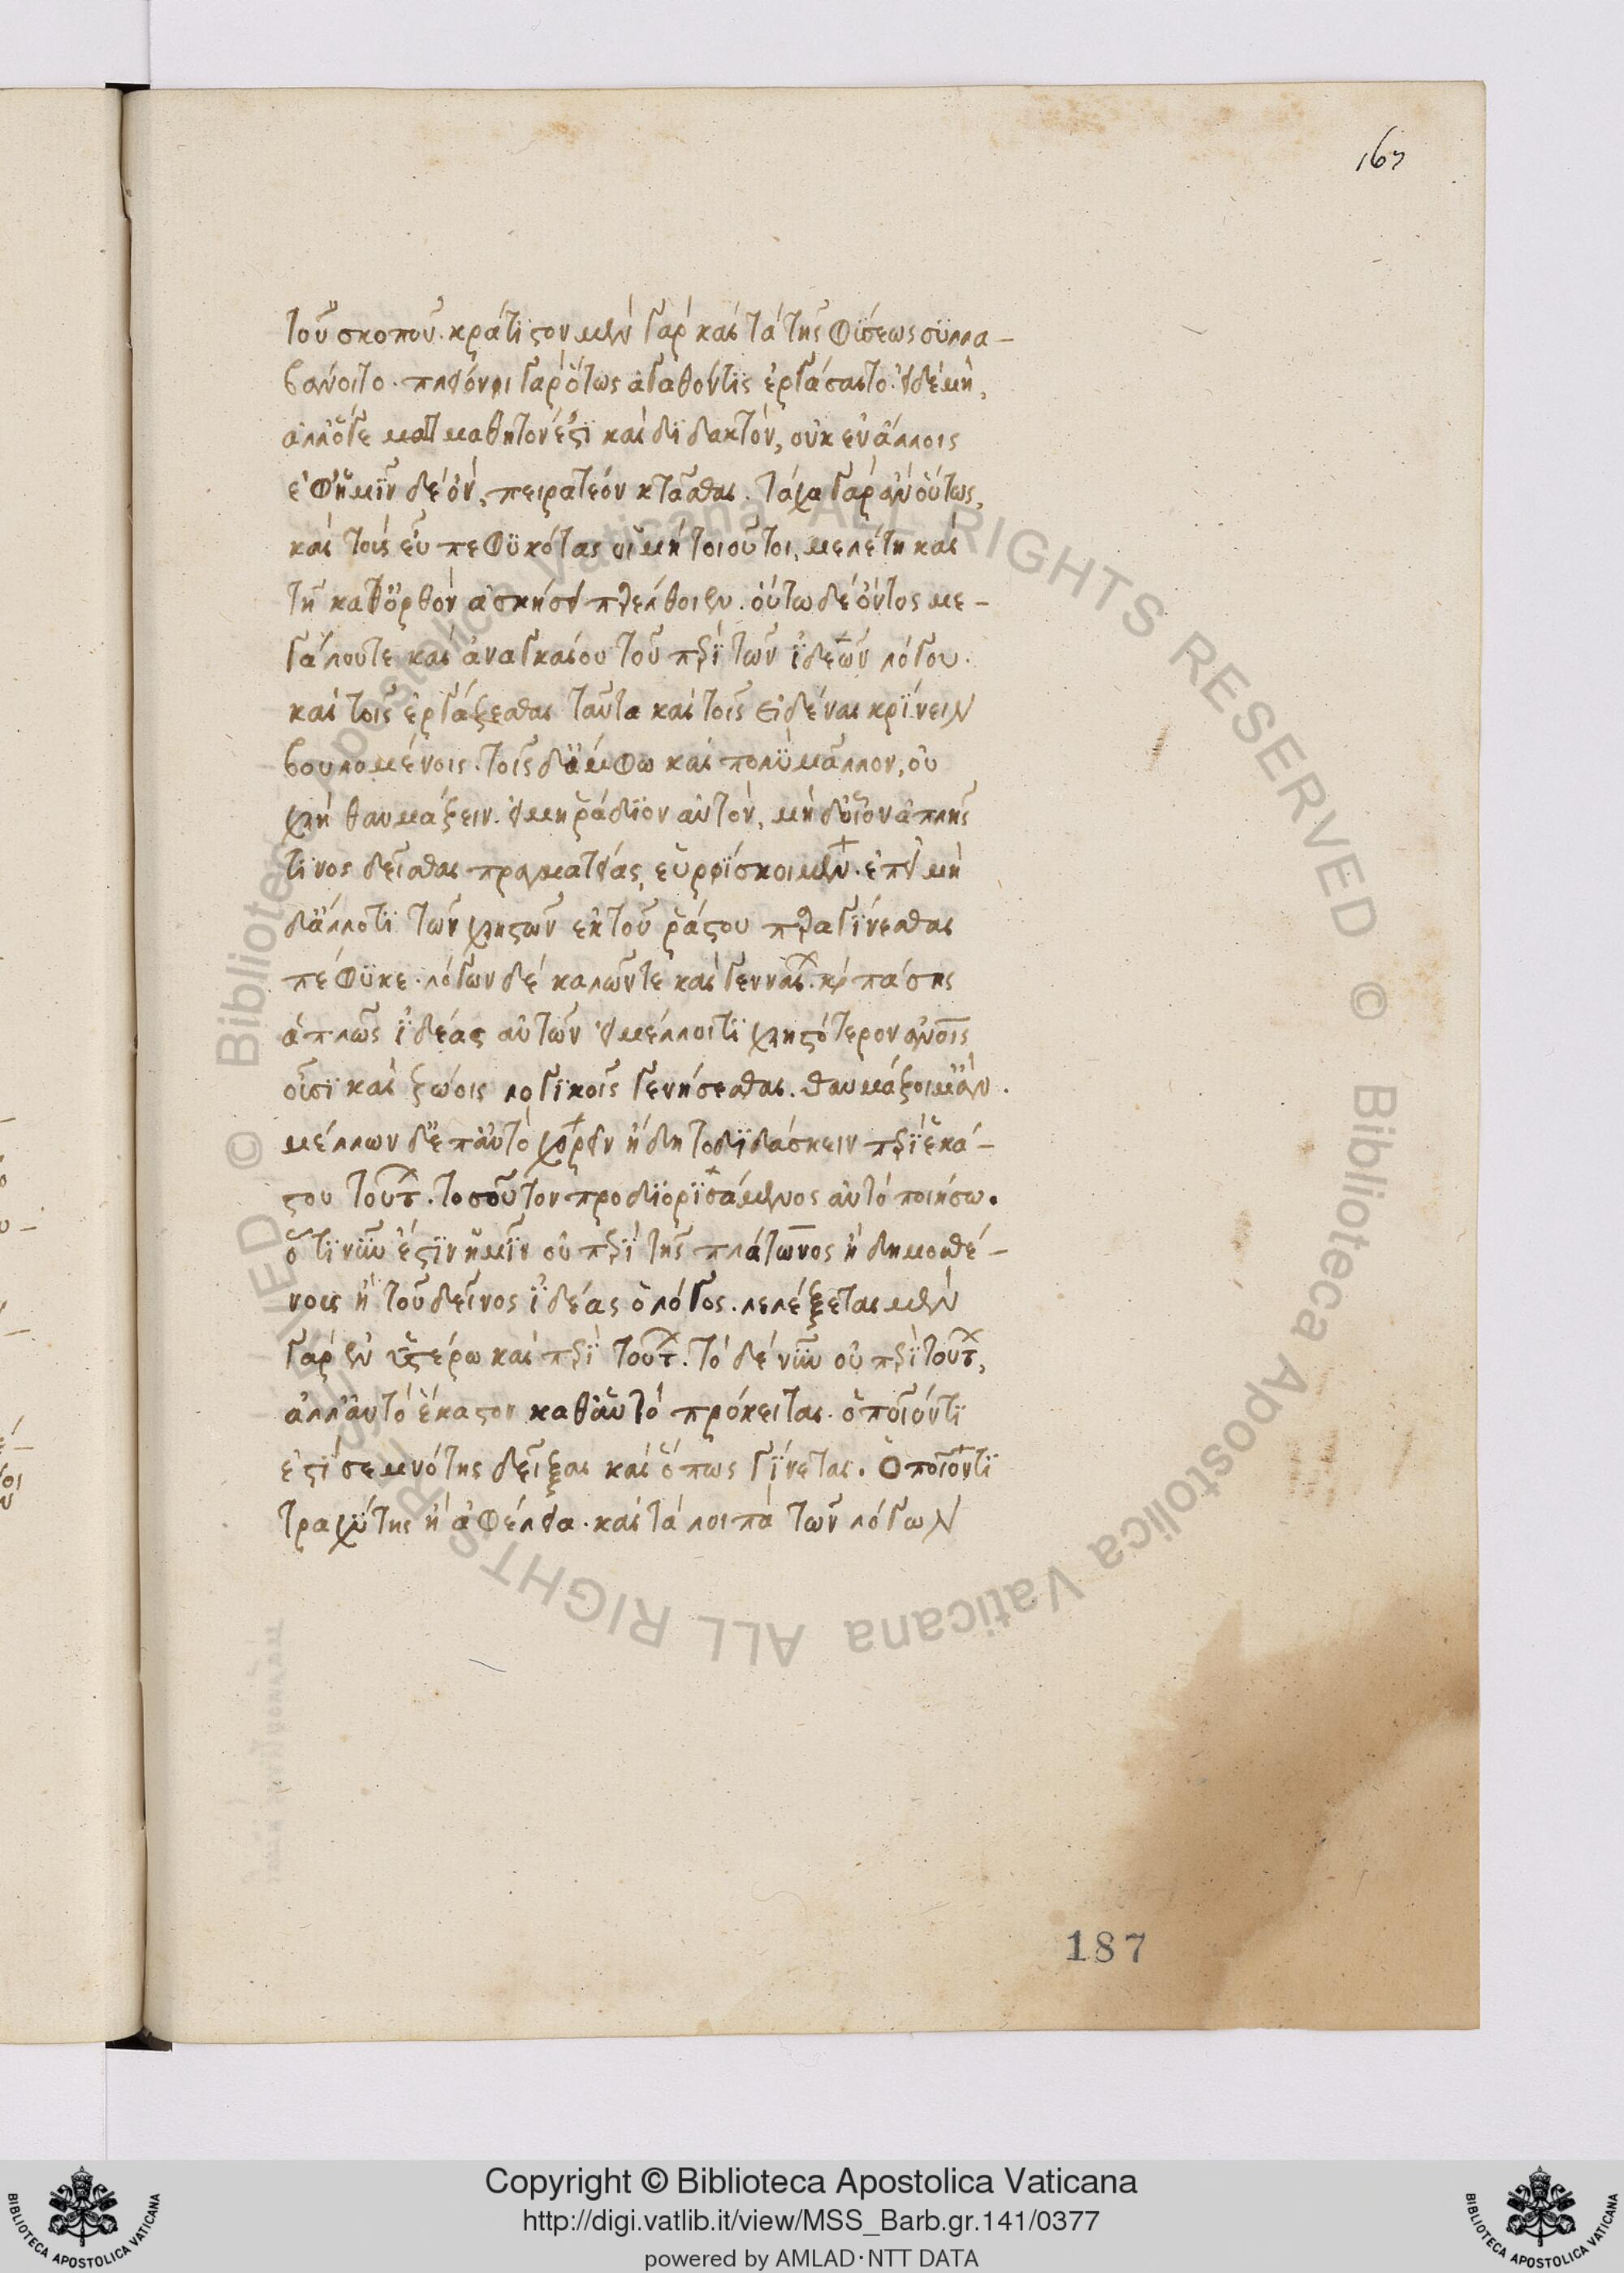 167
τοῦ σκοποῦ. κράτιϛον μὲν γὰρ καὶ τὰ τῆς φύσεως συλλα-
βάνοιτο. πλεόνοι γὰρ οὕτως ἀγαθόντις ἐργάσαιτο. εἰ δὲ μὴ,
ἀλλ' ὅγε μετ μαθητόν ἐϛϊ καὶ διδακτόν, οὐκ ἐν ἄλλοις
ἐφ' ἡμῖν δὲ ὂν, πειρατέον κτᾶσθαι. τάχα γὰρ ἂν οὕτως,
καὶ τοὺς εὖ πεφυκότας οἱ μὴ τοιοῦτοι, μελέτη καὶ
τῇ κατ' ὀρθὸν ἀσκήσει παρέλθοιεν. οὕτω δὲ ὄντος με-
γάλου τε καὶ ἀναγκαίου τοῦ περὶ τῶν ἰδεῶν λόγου.
καὶ τοῖς ἐργάζεσθαι ταῦτα καὶ τοῖς εἰδέναι κρίνειν
βουλομένοις. τοῖς δ' ἄμφω καὶ πολὺ μᾶλλον, οὐ
χρὴ θαυμάζειν. εἰ μὴ ῥάδϊον αὐτὸν, μὴ δ' οἷον ἁπλῆς
τινος δεῖσθαι πραγματείας, εὑρίσκοιμεν. ἐπεὶ μὴ
δ' ἄλλό τι τῶν χρηϛῶν ἐκ τοῦ ῥάϛου παραγίνεσθαι
πέφυκε. λόγων δὲ καλῶν τε καὶ γενναί. καὶ πάσης
ἁπλῶς ἰδέας αὐτῶν εἰ μέλλοι τι χρηϛότερον ἀνοῖς
οὖσι καὶ ζώοις λογικοῖς γενήσεσθαι. θαυμάζοιμ' ἄν.
μέλλων δ' ἐπ' αὐτὸ χωρεῖν ἤδη τὸ διδάσκειν περὶ ἑκά-
ϛου τούτ. τοσοῦτον προδιορισάμενος αὐτὸ ποιήσω.
ὅτι νῦν ἔϛιν ἡμῖν οὐ περὶ τῆς πλάτωνος ἢ δημοσθέ-
νους ἢ τοῦ δεῖνος ἰδέας ὁ λόγος. λελέξεται μὲν
γὰρ ἐν ὑϛέρω καὶ περὶ τούτ. τὸ δὲ νῦν οὐ περὶ τούτ,
ἀλλ' αὐτὸ ἕκαϛον καθ' αὑτὸ πρόκειται. ὁποῖόν τι
ἐϛὶ σεμνότης δεῖξαι καὶ ὅπως γίνεται. ὁποῖόν τι
τραχύτης ἢ ἀφέλεια. καὶ τὰ λοιπὰ τῶν λόγων
187
Copyright © Biblioteca Apostolica Vaticana
http://digi.vatlib.it/view/MSS_Barb.gr.141/0377
powered by AMLAD·NTT DATA